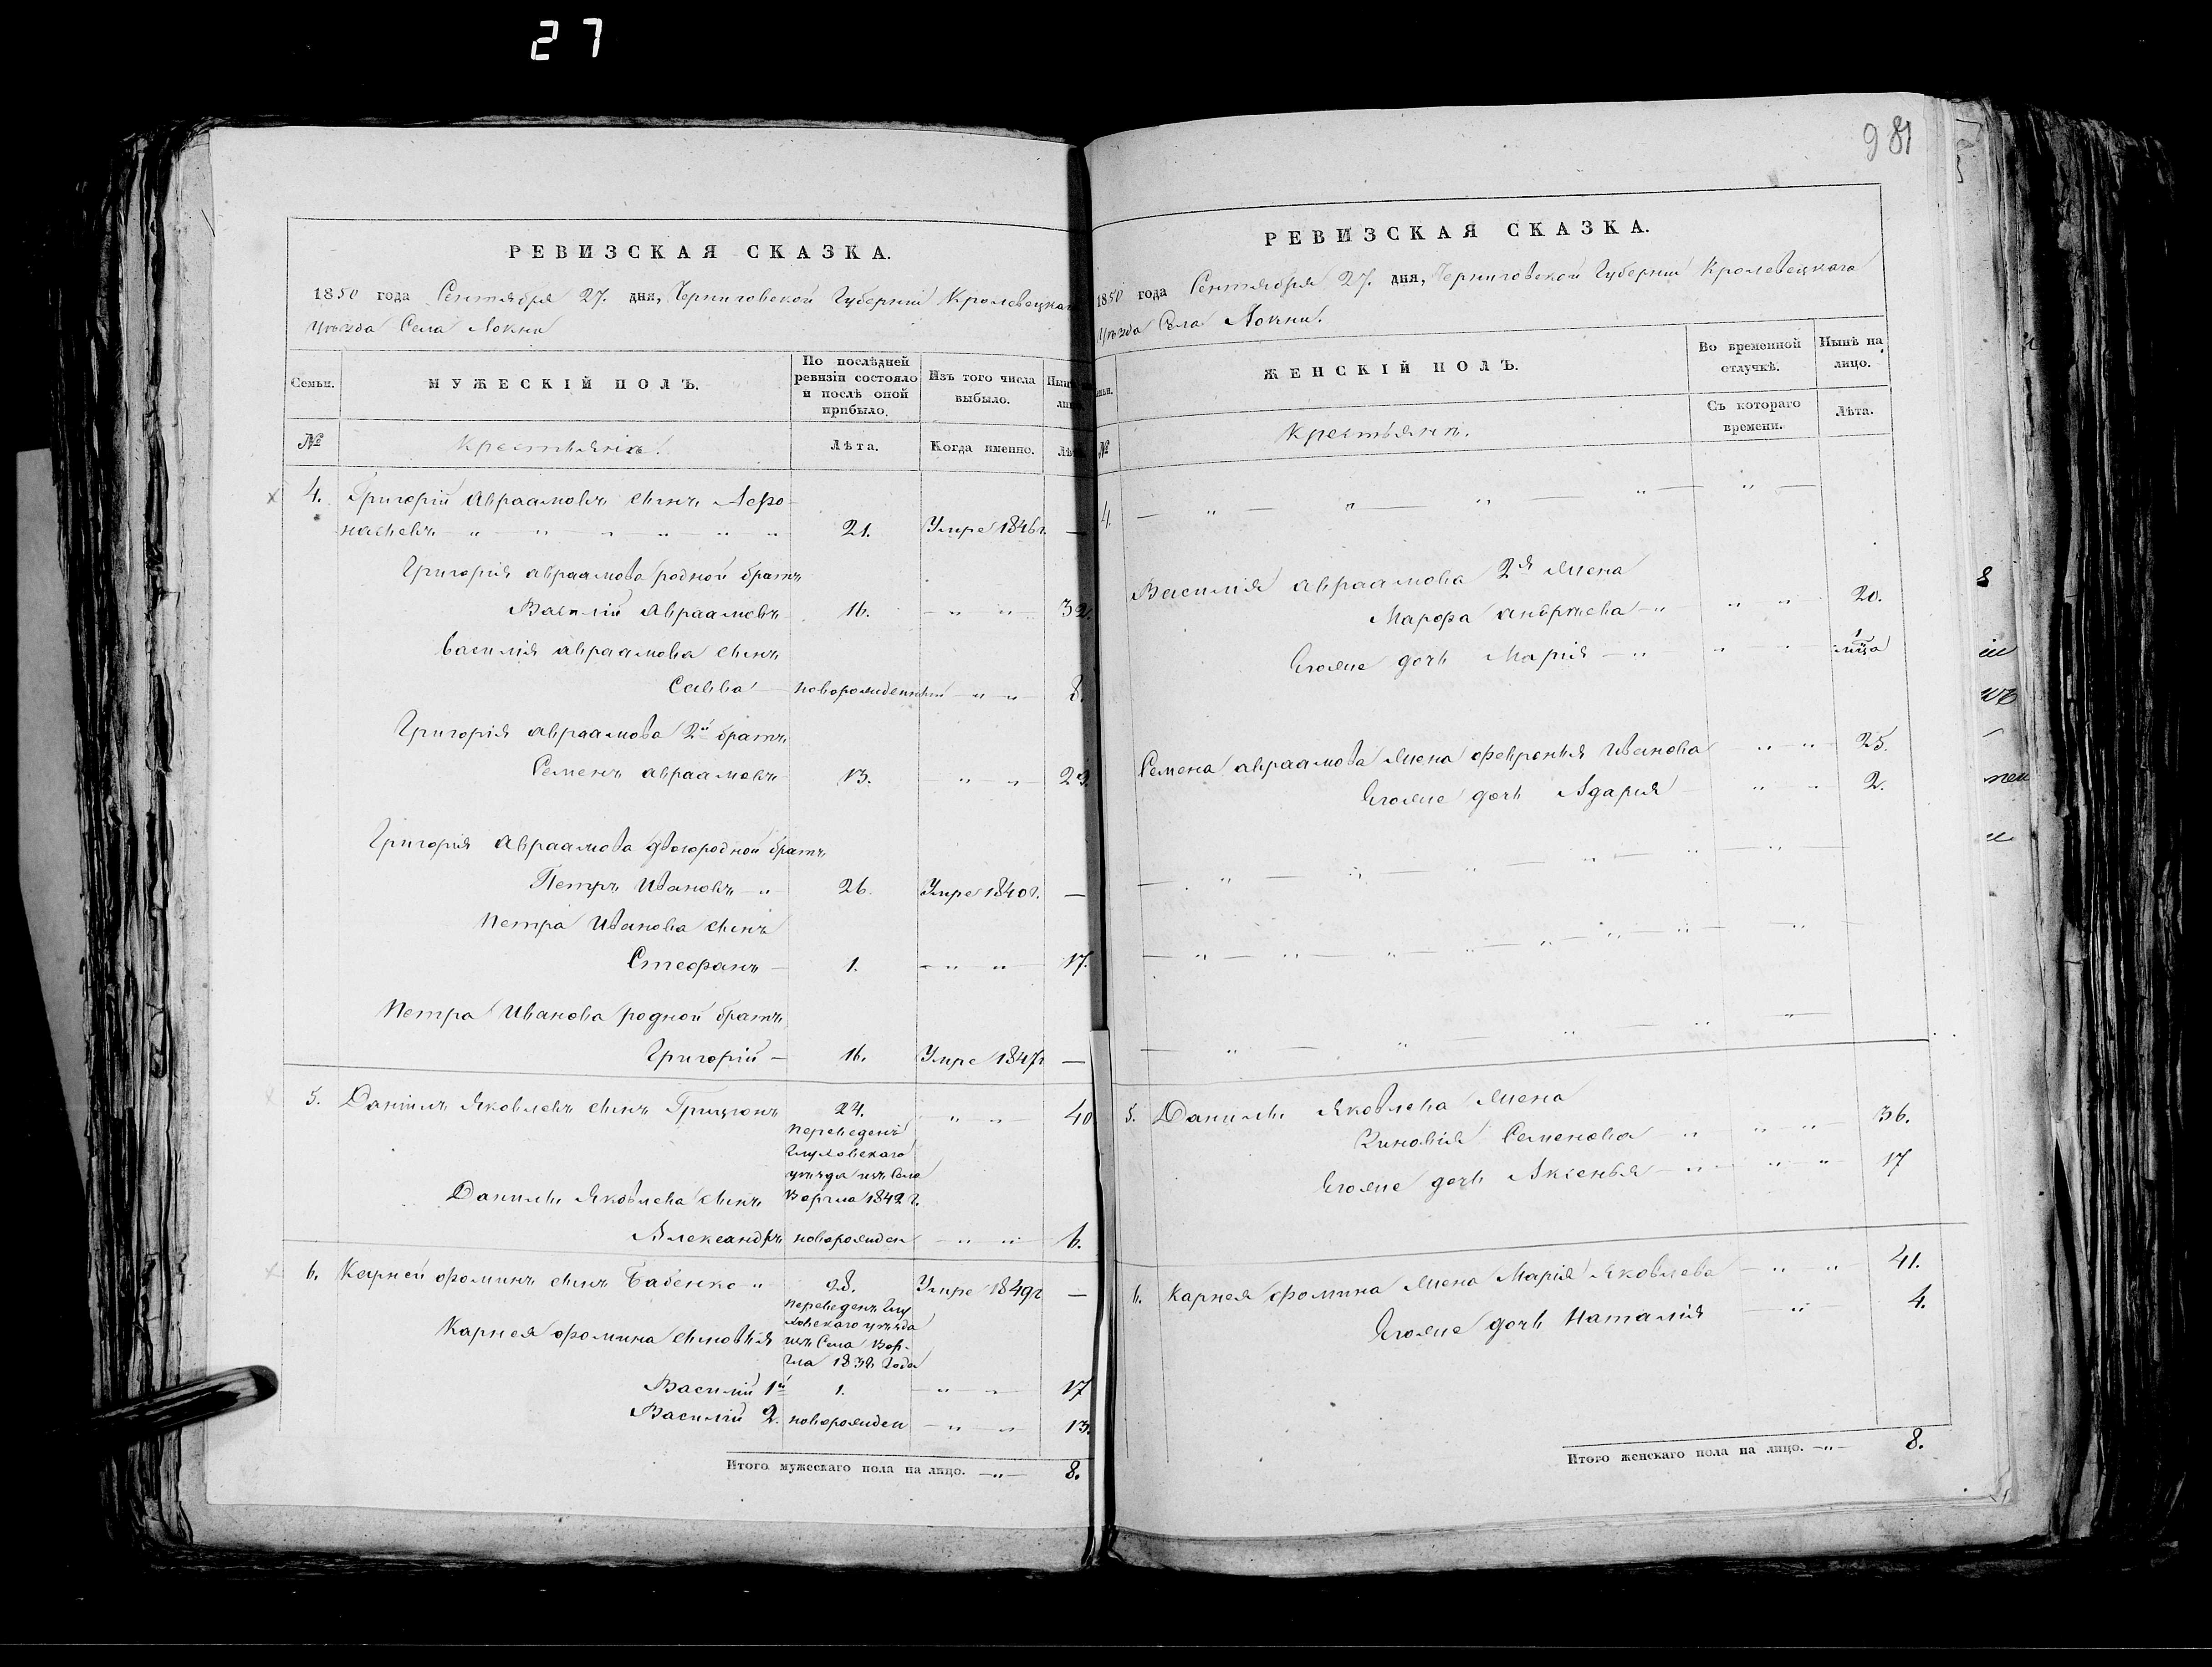 27
981
РЕВИЗСКАЯ СКАЗКА.
1850 года Сентября 27. дня, Черниговской Губерніи Кролевецкаго
Уѣзда Села Локни
Семьи. МУЖЕСКІЙ ПОЛЪ. По послѣдней ревизіи состояло и послѣ оной прибыло. Изъ того числа выбыло.
№ Крестьяне. Лѣта. Когда именно.
4. Григорій Авраамовъ сынъ Афо-
насьевъ 21. Умре 1846 г. —
Григорія Авраамова родной братъ
Василій Авраамовъ 16. 32.
Василія Авраамова сынъ
Савва новорожденный 8.
Григорія Авраамова 2й братъ
Семенъ Авраамовъ 13. 29.
Григорія Авраамова двоюродной братъ
Петръ Ивановъ 26. Умре 1840 г. —
Петра Иванова сынъ
Стефанъ — 1. 17.
Петра Иванова родной братъ
Григорій — 16. Умре 1847 г —
5. Даніилъ Яковлевъ сынъ 24. 40
переведенъ
Глуховскаго
уѣзда изъ села
Даніила Яковлева сынъ Воргла 1842 г.
Александръ новорожден 6.
6. Карней Фоминъ сынъ Бабенко 28. Умре 1849 г —
переведенъ Глу
ховскаго уѣзда
Карнея Фомина сыновья изъ Села Вор-
гла 1838 года
Василій 1й 1. 17
Василій 2. новорожден 13.
Итого мужескаго пола на лицо. 8.
РЕВИЗСКАЯ СКАЗКА.
1850 года Сентября 27. дня, Черниговской Губерніи Кролевецкаго
Уѣзда Села Локни.
ЖЕНСКІЙ ПОЛЪ. Во временной отлучкѣ. Нынѣ на лицо.
№ Крестьяне. Съ котораго времени. Лѣта.
4.
Василія Авраамова 2я жена
Марфа Андреева 20.
Егоже дочь Марія 1 мца
Семена Авраамова жена Февронья Иванова 25.
Егоже дочь Адарья 2.
5. Даніила Яковлева жена
Зиновія Семенова 36.
Егоже дочь Аксенья 17
6. Карнея Фомина жена Марія Яковлева 41.
Егоже дочь Наталія 4.
Итого женскаго пола на лицо. 8.